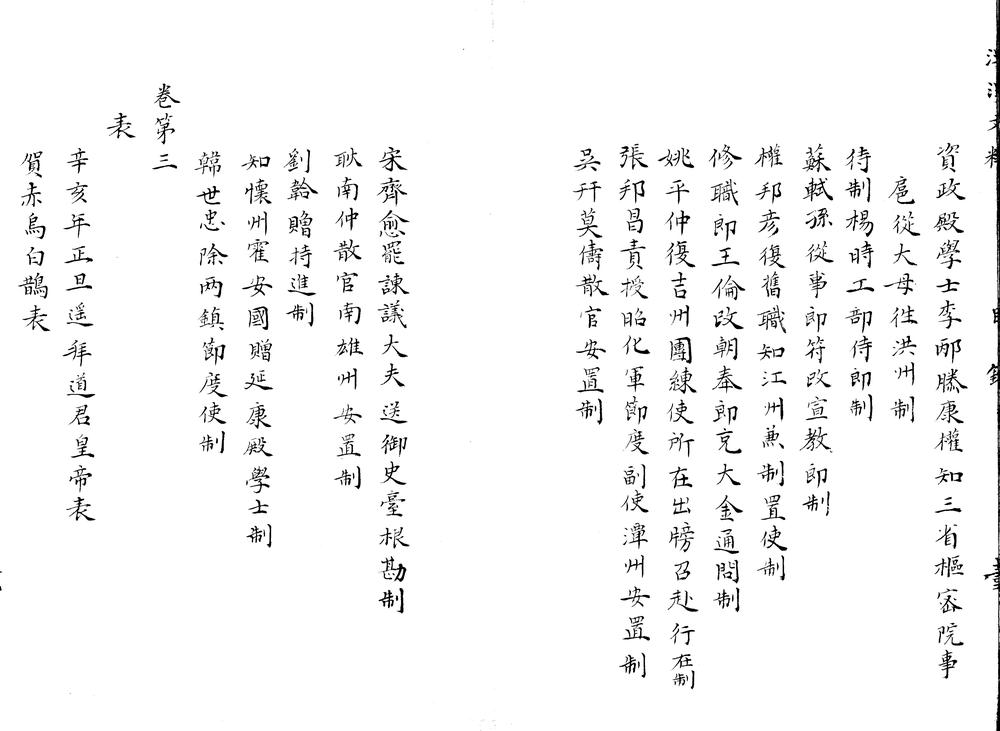 資政殿學士李邴滕康權知三省樞密院事
扈從大母徃洪州制
待制楊時工部侍郎制
蘇軾孫從事郎符改宣教郎制
權邦彦復舊職知江州兼制置使制
修職郎王倫改朝奉郎充大金通問制
姚平仲復吉州團練使所在出牓召赴行在制
張邦昌責授昭化軍節度副使潭州安置制
吳幵莫儔散官安置制
宋齊愈罷諫議大夫送御史臺根勘制
耿南仲散官南雄州安置制
劉韐贈持進制
知懷州霍安國贈延康殿學士制
韓世忠除兩鎮節度使制
卷第三
表
辛亥年正旦遥拜道君皇帝表
賀赤烏白鵲表